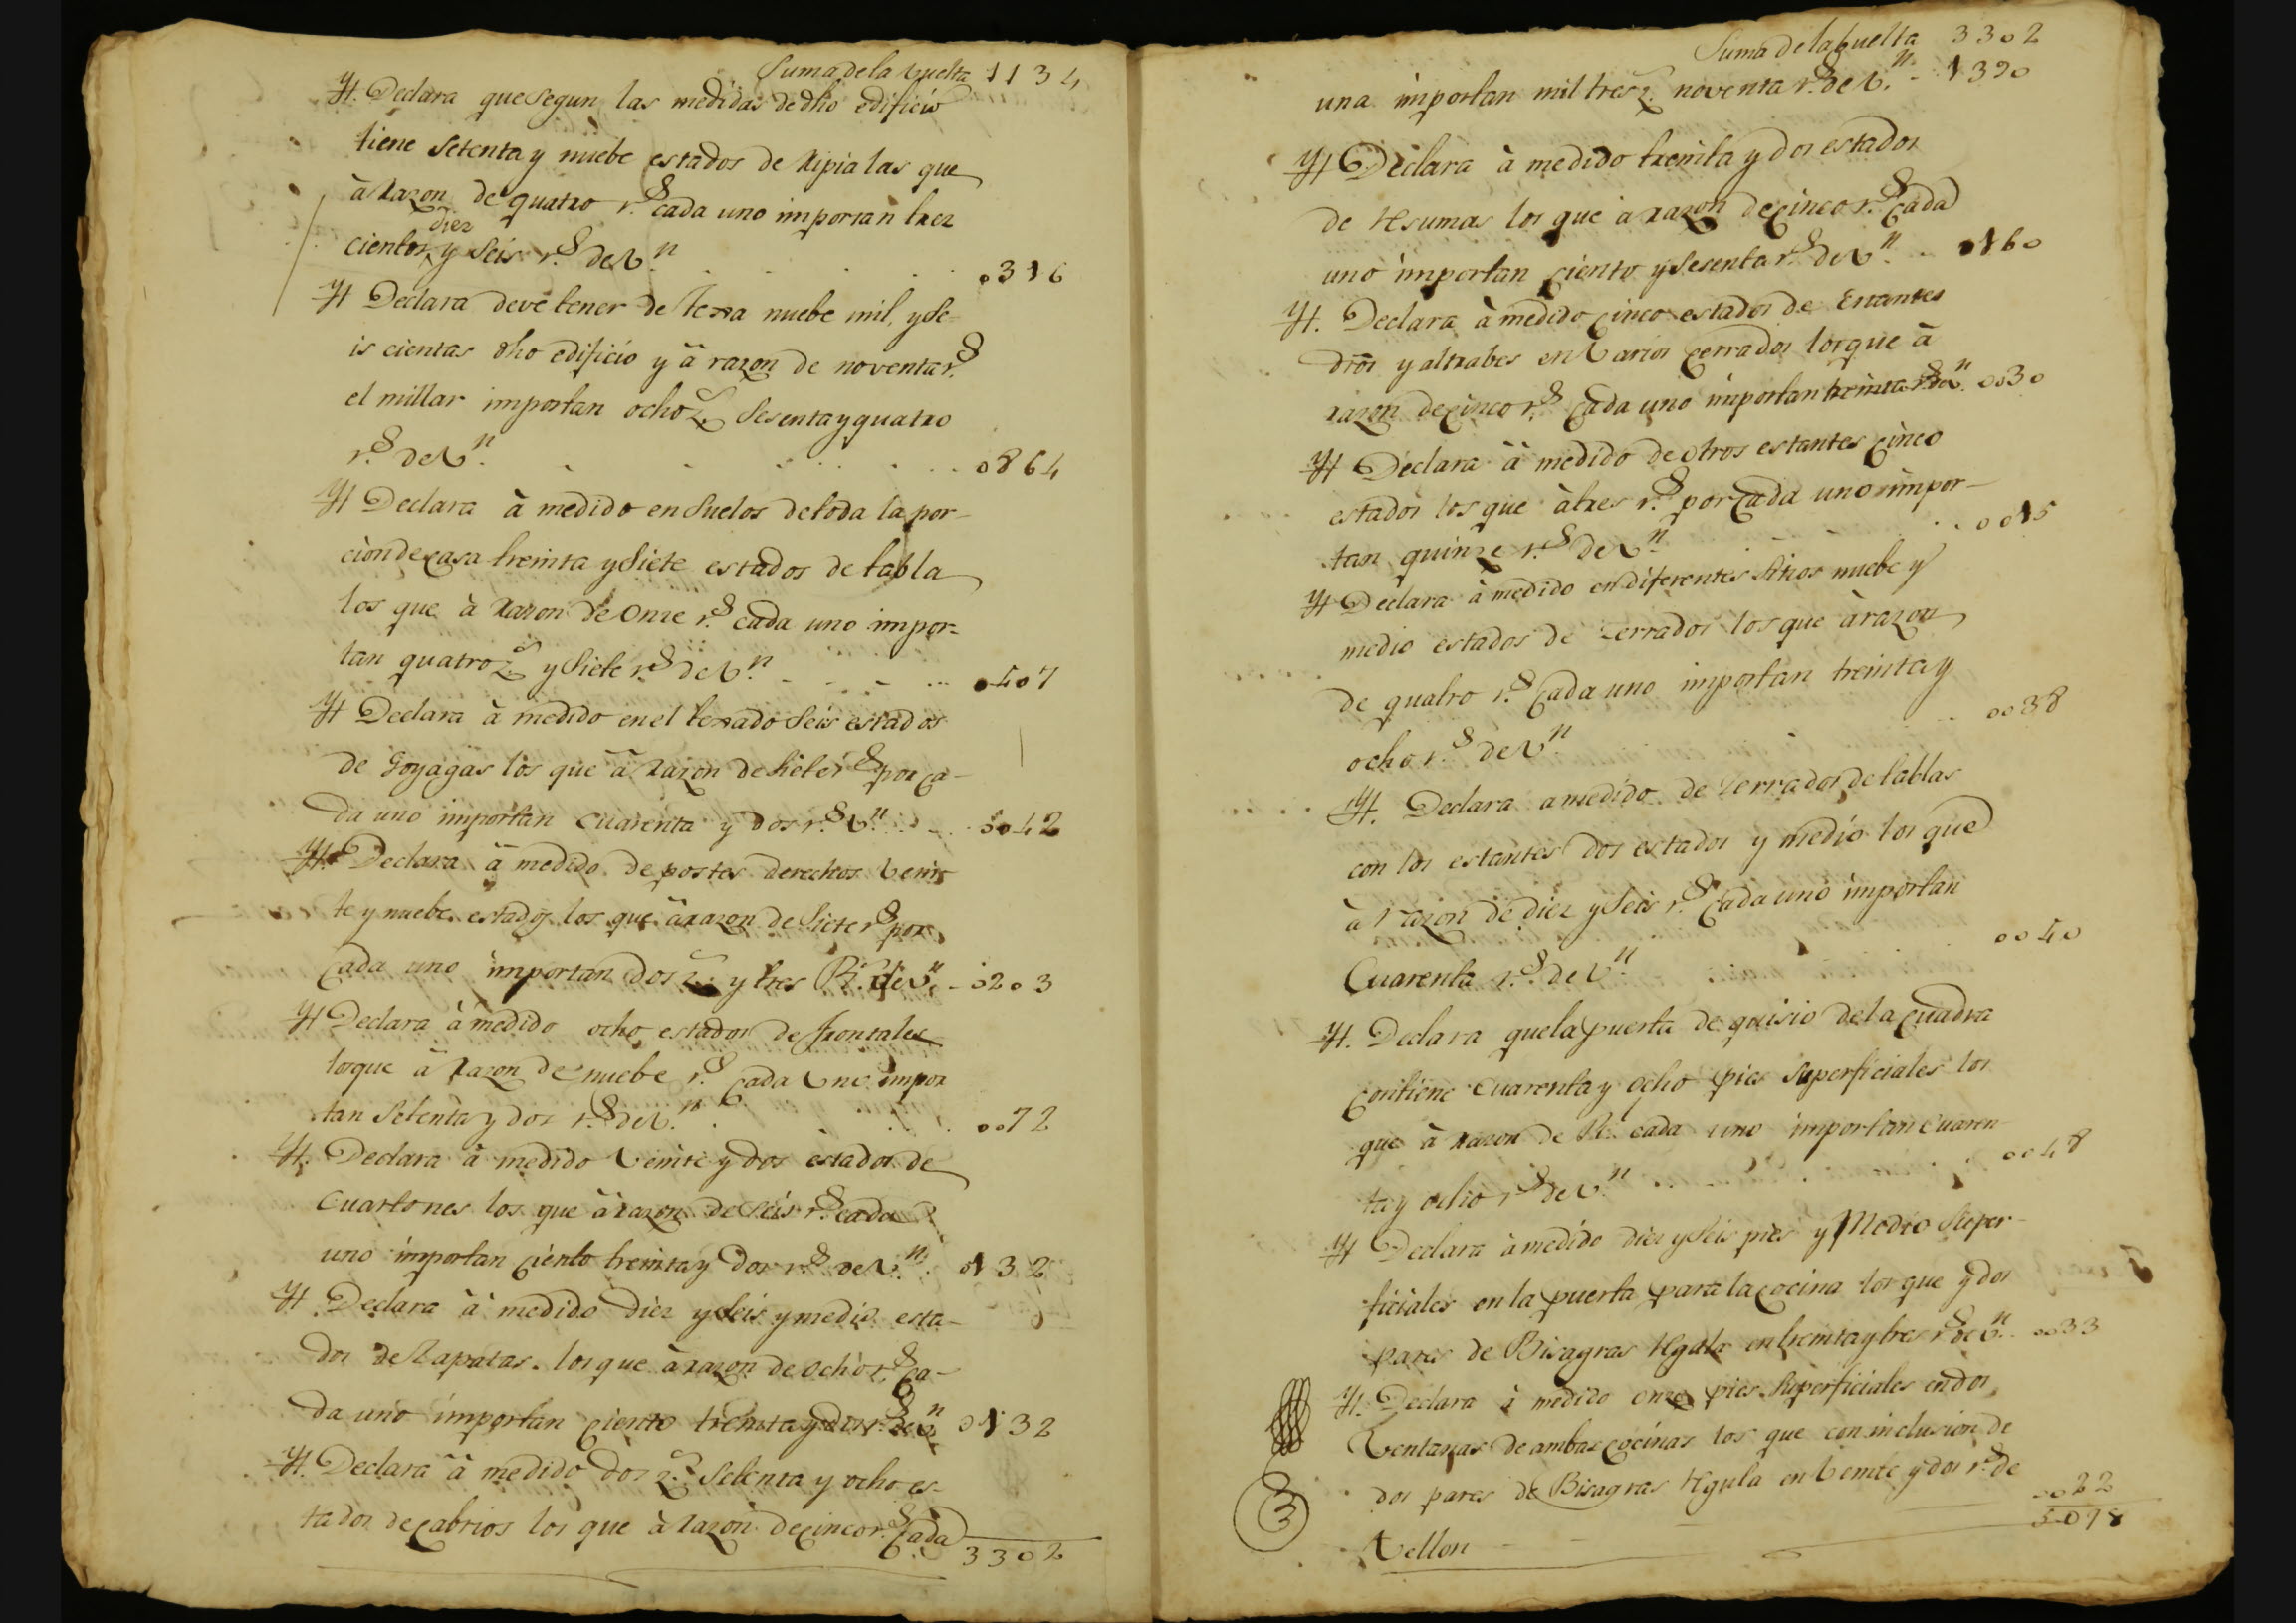 Suma de la buelta 1134
Yt. Declara que segun las medidas de dho edificio
tiene setenta y nuebe estados de Ripia las que
à Razon de quatro r.s cada uno importan trez
diez
cientos y seis r.s de V.n 0316
Yt Declara deve tener de texa nuebe mil, y se-
is cientas dho edificio y â razon de noventa r.s
el millar importan ocho z.s sesenta y quatro
r.s de V.n 0864
Yt Declara à medido en suelos de toda la por-
cion de casa treinta y siete estados de tabla
los que à Razon de Onze r.s cada uno impor-
tan quatro z.s y siete r.s de V.n 0407
Yt Declara à medido en el texado seis estados
de Goyagas los que â Razon de siete r.s por ca-
da uno importan cuarenta y dos r.s V.n 0042
Yt. Declara â medido de postes derechos Vein-
te y nuebe estados los que â razon de siete r.s por
Cada uno importan dos z.s y tres R.s de V.n 0203
Yt Declara â medido ocho estados de frontales
los que â Razon de nuebe r.s Cada Uno impor
tan setenta y dos r.s de V.n 0072
Yt. Declara â medido Veinte y dos estados de
Cuartones los que â razon de seis r.s cada
uno importan ciento treinta y dos r.s de V.n 0132
Yt Declara à medido diez y seis y medio esta-
dos de Zapatas. los que à razon de ocho r.s ca-
da uno importan ciento treinta y dos r.s de V.n 0132
Yt. Declara â medido dos z.s setenta y ocho es-
tados de cabrios los que à Razon de cinco r.s Cada
3302
Suma de la buelta 3302
una importan mil tres z.s noventa r.s de V.n 1390
Yt Declara à medido treinta y dos estados
de tesumas los que a razon de cinco r.s Cada
uno importan ciento y sesenta r.s de V.n 0160
Yt. Declara à medido cinco estados de Entantes
dros y altrabes en Varios Cerrados los que à
razon de cinco r.s Cada uno importan treinta r.s de V.n 0030
Yt Declara â medido de otros estantes cinco
estados los que à tres r.s por Cada uno impor-
tan quinze r.s de V.n 0015
Yt Declara à medido en diferentes sitios nuebe y
medio estados de zerrados los que à razon
de quatro r.s Cada uno importan treinta y
ocho r.s de V.n 0038
Yt. Declara a medido de zerrados de tablas
con los estantes dos estados y medio los que
à razon de diez y seis r.s Cada uno importan
Cuarenta r.s de V.n 0040
Yt. Declara que la puerta de quisio de la Cuadra
contiene cuarenta y ocho pies superficiales los
que à razon de R.s cada uno importan cuaren-
ta y ocho r.s de V.n 0048
Yt Declara à medido diez y seis pies y Medio super-
ficiales en la puerta para la Cocina los que y dos
pares de Bisagras tegula en treinta y tres r.s de V.n 0033
Yt. Declara à medido onze pies superficiales en dos
Ventanas de ambas cocinas los que con inclusion de
dos pares de Bisagras tegula en Veinte y dos r.s de
Vellon 0022
3
5078